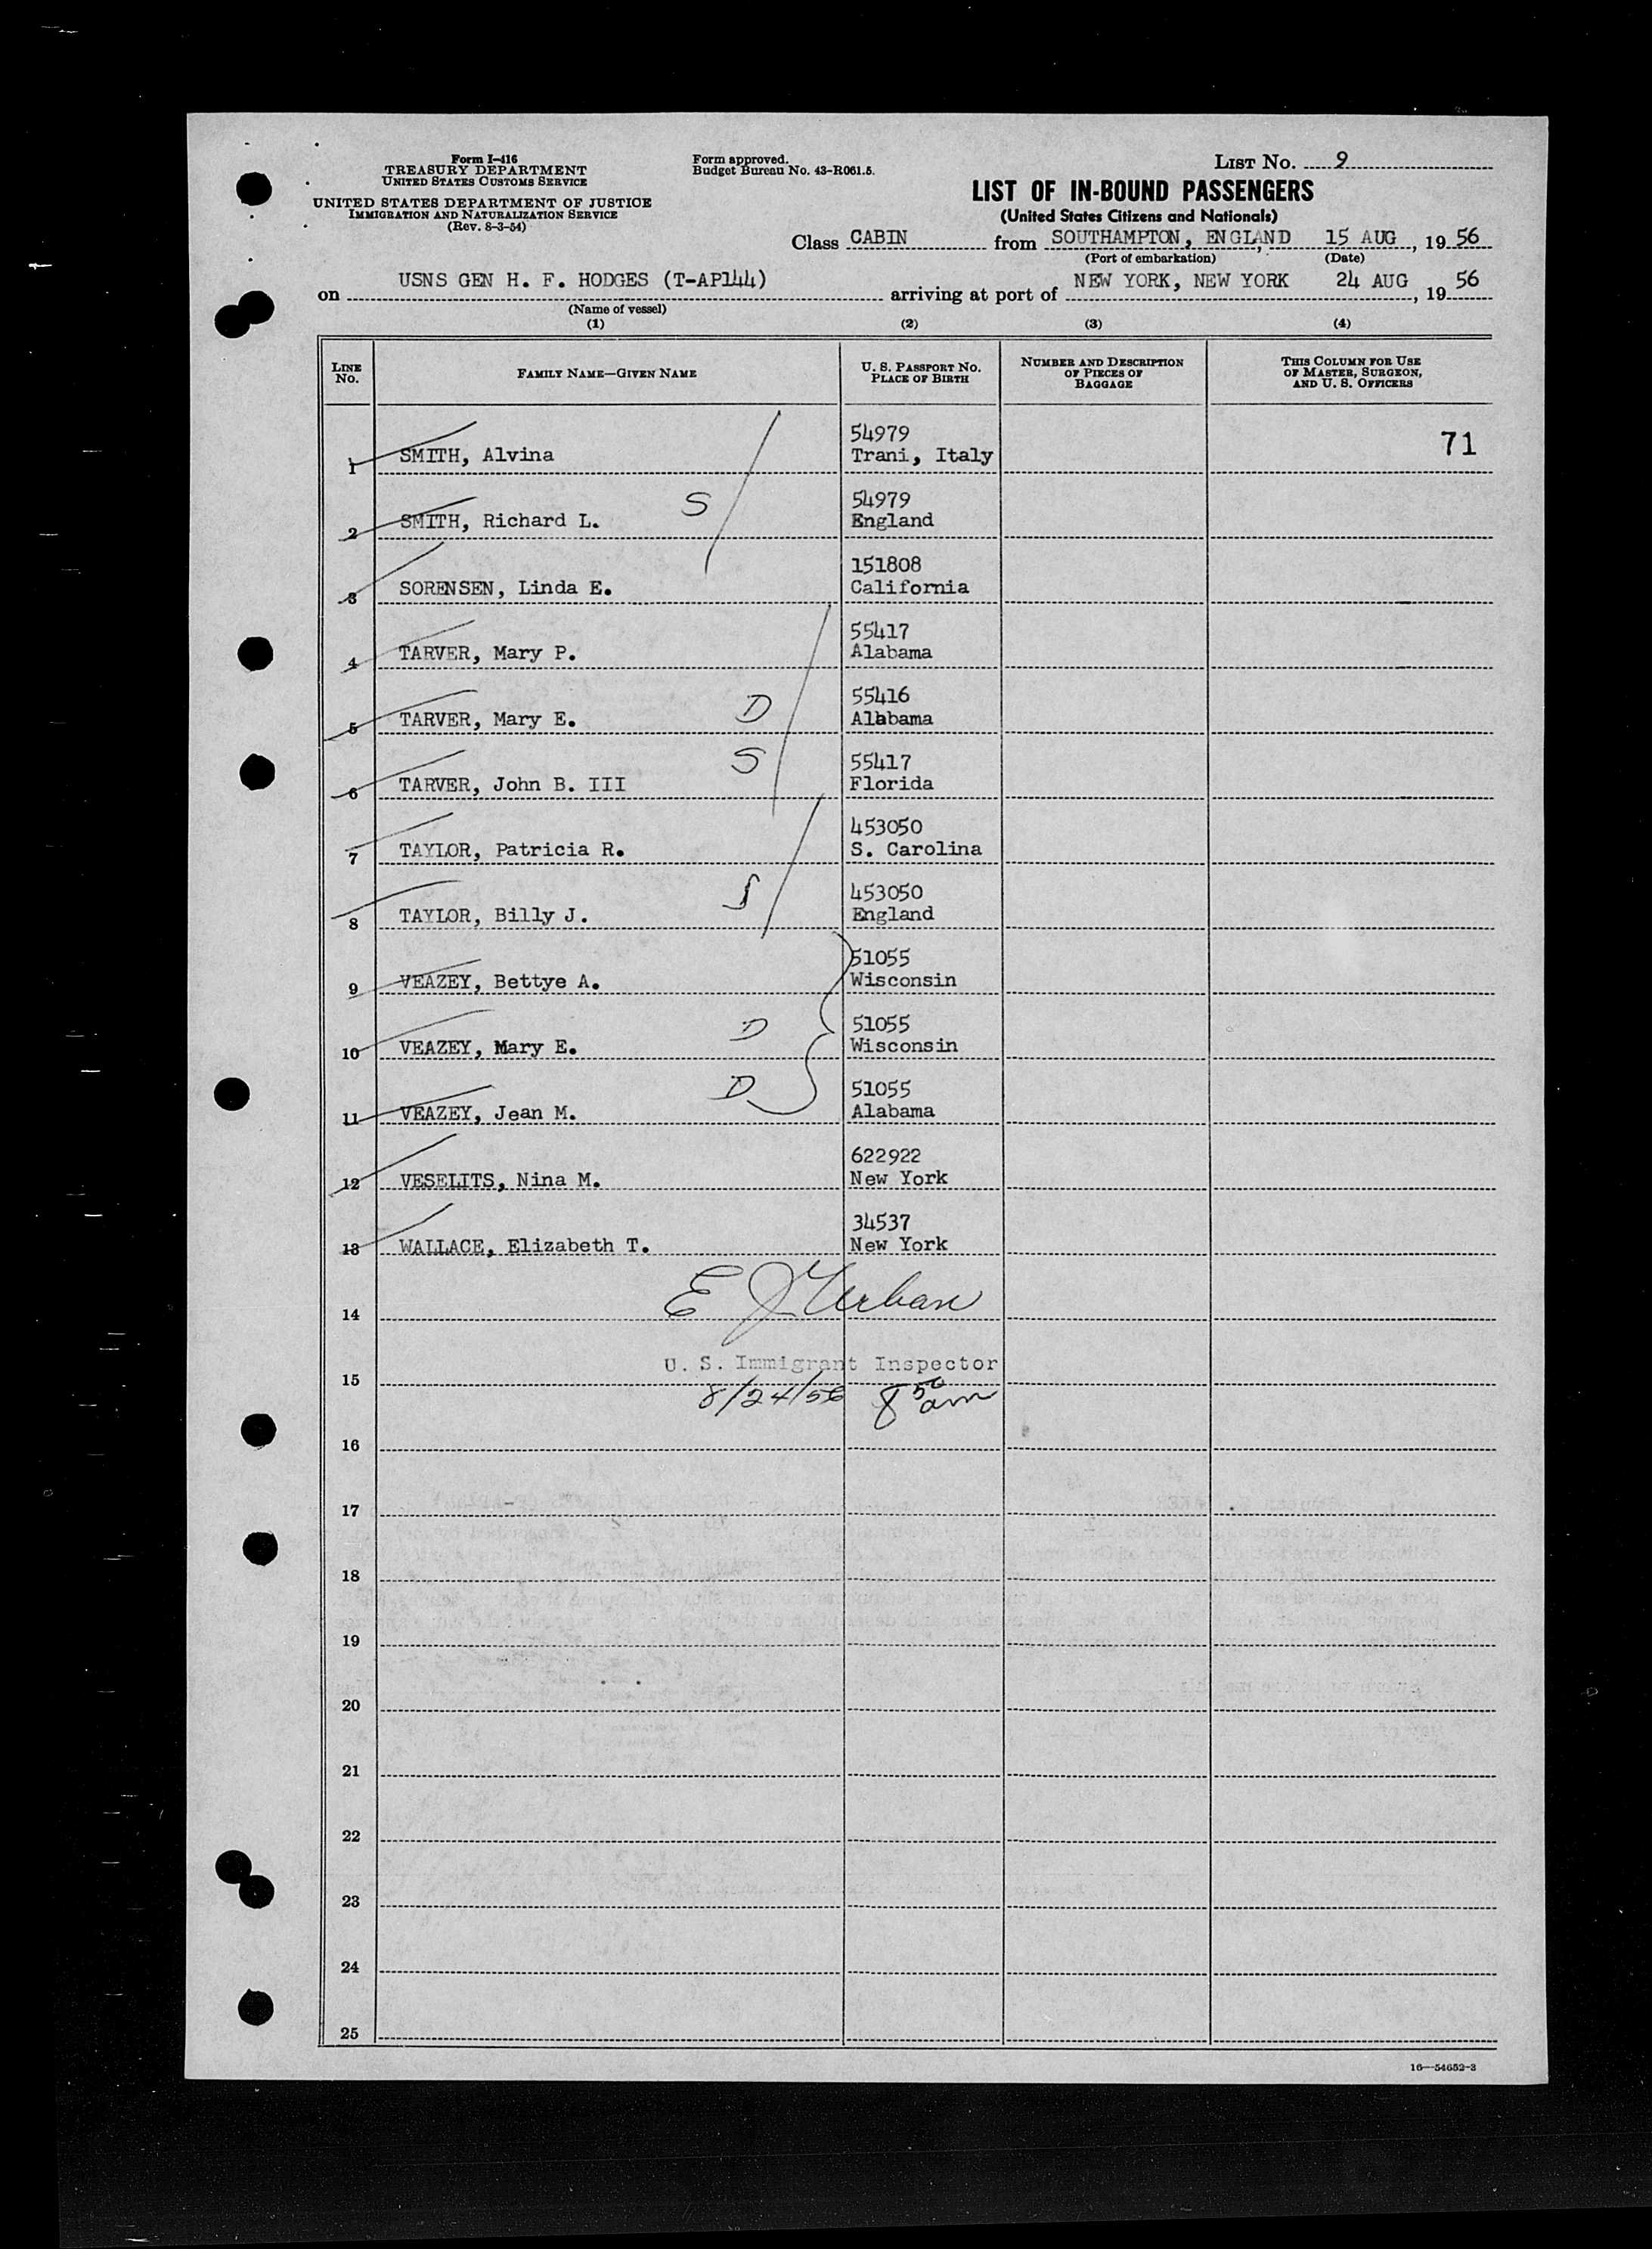 Form I-416
TREASURY DEPARTMENT
UNITED STATES CUSTOMS SERVICE
UNITED STATES DEPARTMENT OF JUSTICE
IMMIGRATION AND NATURALIZATION SERVICE
(Rev. 8-3-54)
Form approved.
Budget Bureau No. 43-R061.5.
LIST NO. 9
LIST OF IN-BOUND PASSENGERS
(United States Citizens and Nationals)
Class CABIN from SOUTHAMPTON, ENGLAND 15 AUG, 19 56
(Port of embarkation) (Date)
on USNS GEN H. F. HODGES (T-AP144) arriving at port of NEW YORK, NEW YORK 24 AUG, 19 56
(Name of vessel)
(1) (2) (3) (4)
LINE NO. FAMILY NAME—GIVEN NAME U. S. PASSPORT NO. PLACE OF BIRTH NUMBER AND DESCRIPTION OF PIECES OF BAGGAGE THIS COLUMN FOR USE OF MASTER, SURGEON, AND U. S. OFFICERS
54979 71
1 SMITH, Alvina Trani, Italy
S 54979
2 SMITH, Richard L. England
151808
3 SORENSEN, Linda E. California
55417
4 TARVER, Mary P. Alabama
55416
5 TARVER, Mary E. D Alabama
S 55417
6 TARVER, John B. III Florida
453050
7 TAYLOR, Patricia R. S. Carolina
S 453050
8 TAYLOR, Billy J. England
51055
9 VEAZEY, Bettye A. Wisconsin
D 51055
10 VEAZEY, Mary E. Wisconsin
D 51055
11 VEAZEY, Jean M. Alabama
622922
12 VESELITS, Nina M. New York
34537
13 WALLACE, Elizabeth T. New York
14 E J Urban
U. S. Immigrant Inspector
15
8/24/56 8 50 am
16
17
18
19
20
21
22
23
24
25
16—54652-3